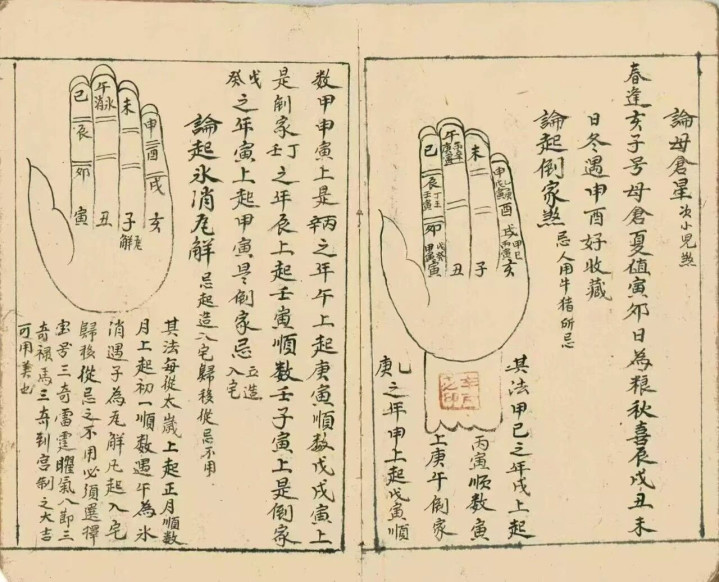 論母倉星 次小児煞
春逢亥子号母倉夏值寅卯日為粮秋喜辰戌丑未
日冬遇申酉好收藏
論起倒家煞 忌人用牛猪所忌
午
巳
未
申
辰
丁壬
壬寅
酉
卯
戌
甲己
丙寅
戊癸
甲寅
寅
丑
子
亥
其法甲己之年戌上起
丙寅順数寅
上庚午倒家
乙庚之年申上起戊寅順
数甲申寅上是丙辛之年午上起庚寅順数戊戌寅上
是倒家丁壬之年辰上起壬寅順数壬子寅上是倒家
戊癸之年寅上起甲寅是倒家忌立造入宅
論起氷消瓦解 忌起造入宅歸移從忌不用
午
氷消
巳
未
申
辰
酉
卯
戌
寅
丑
子
瓦解
亥
其法每從太歲上起正月順数
月上起初一順数遇午為氷
消遇子為瓦解凡起入宅
歸移從忌之不用必須選擇
三奇雷霆曜氣八節三
奇禄馬三奇到宮制之大吉
可用美也